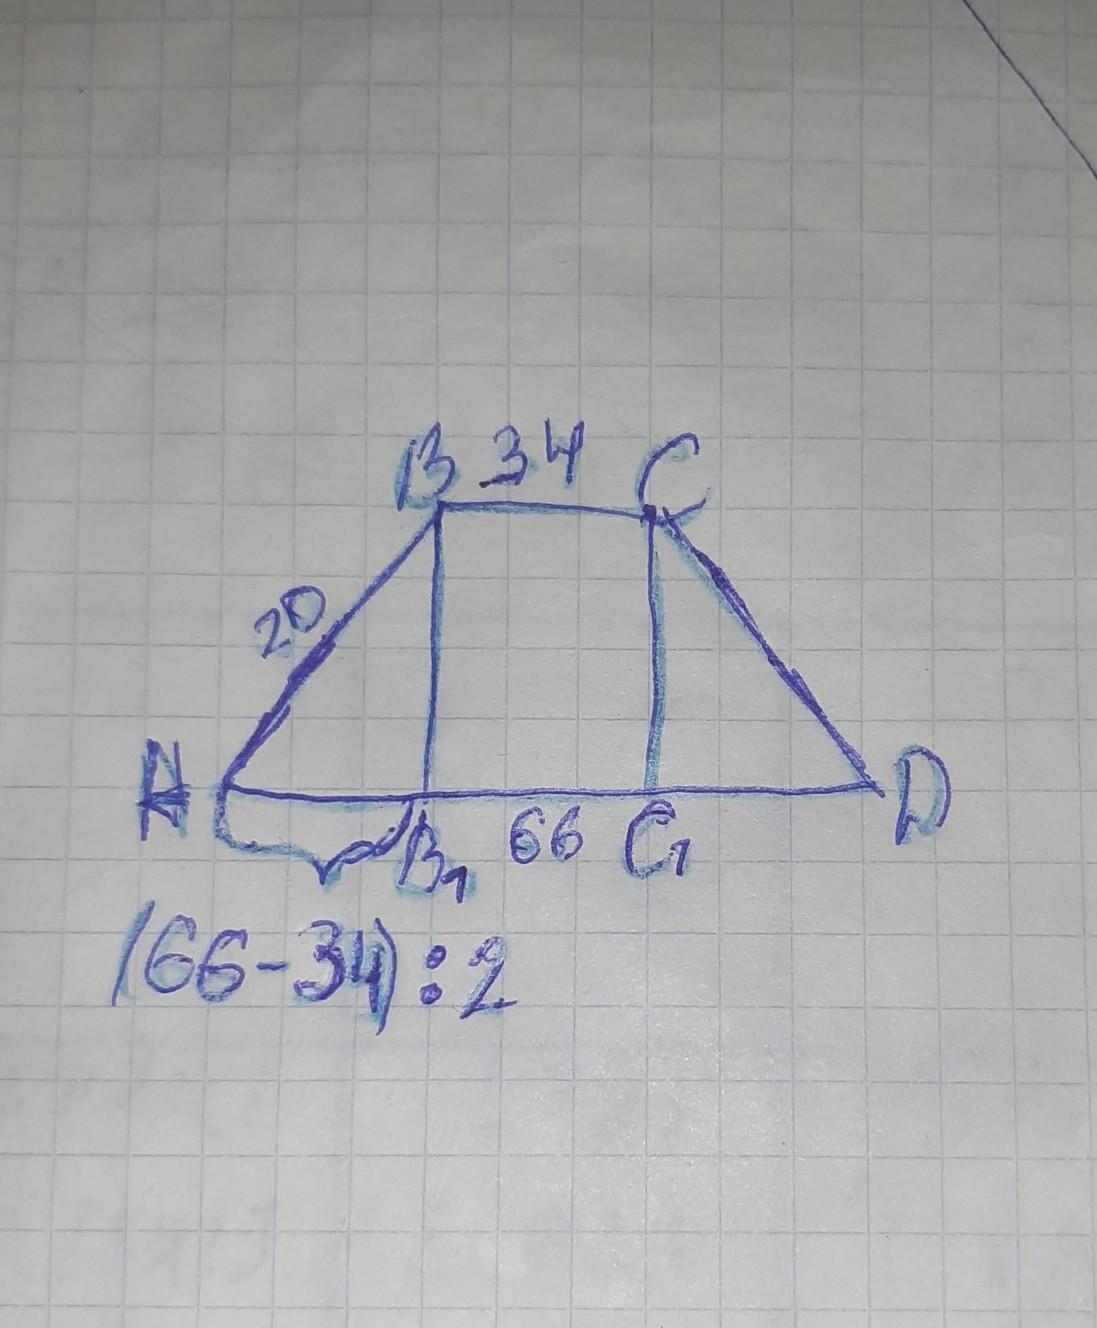 B 34 C
20
A
D
B₁ 66 C₁
(66-34):2